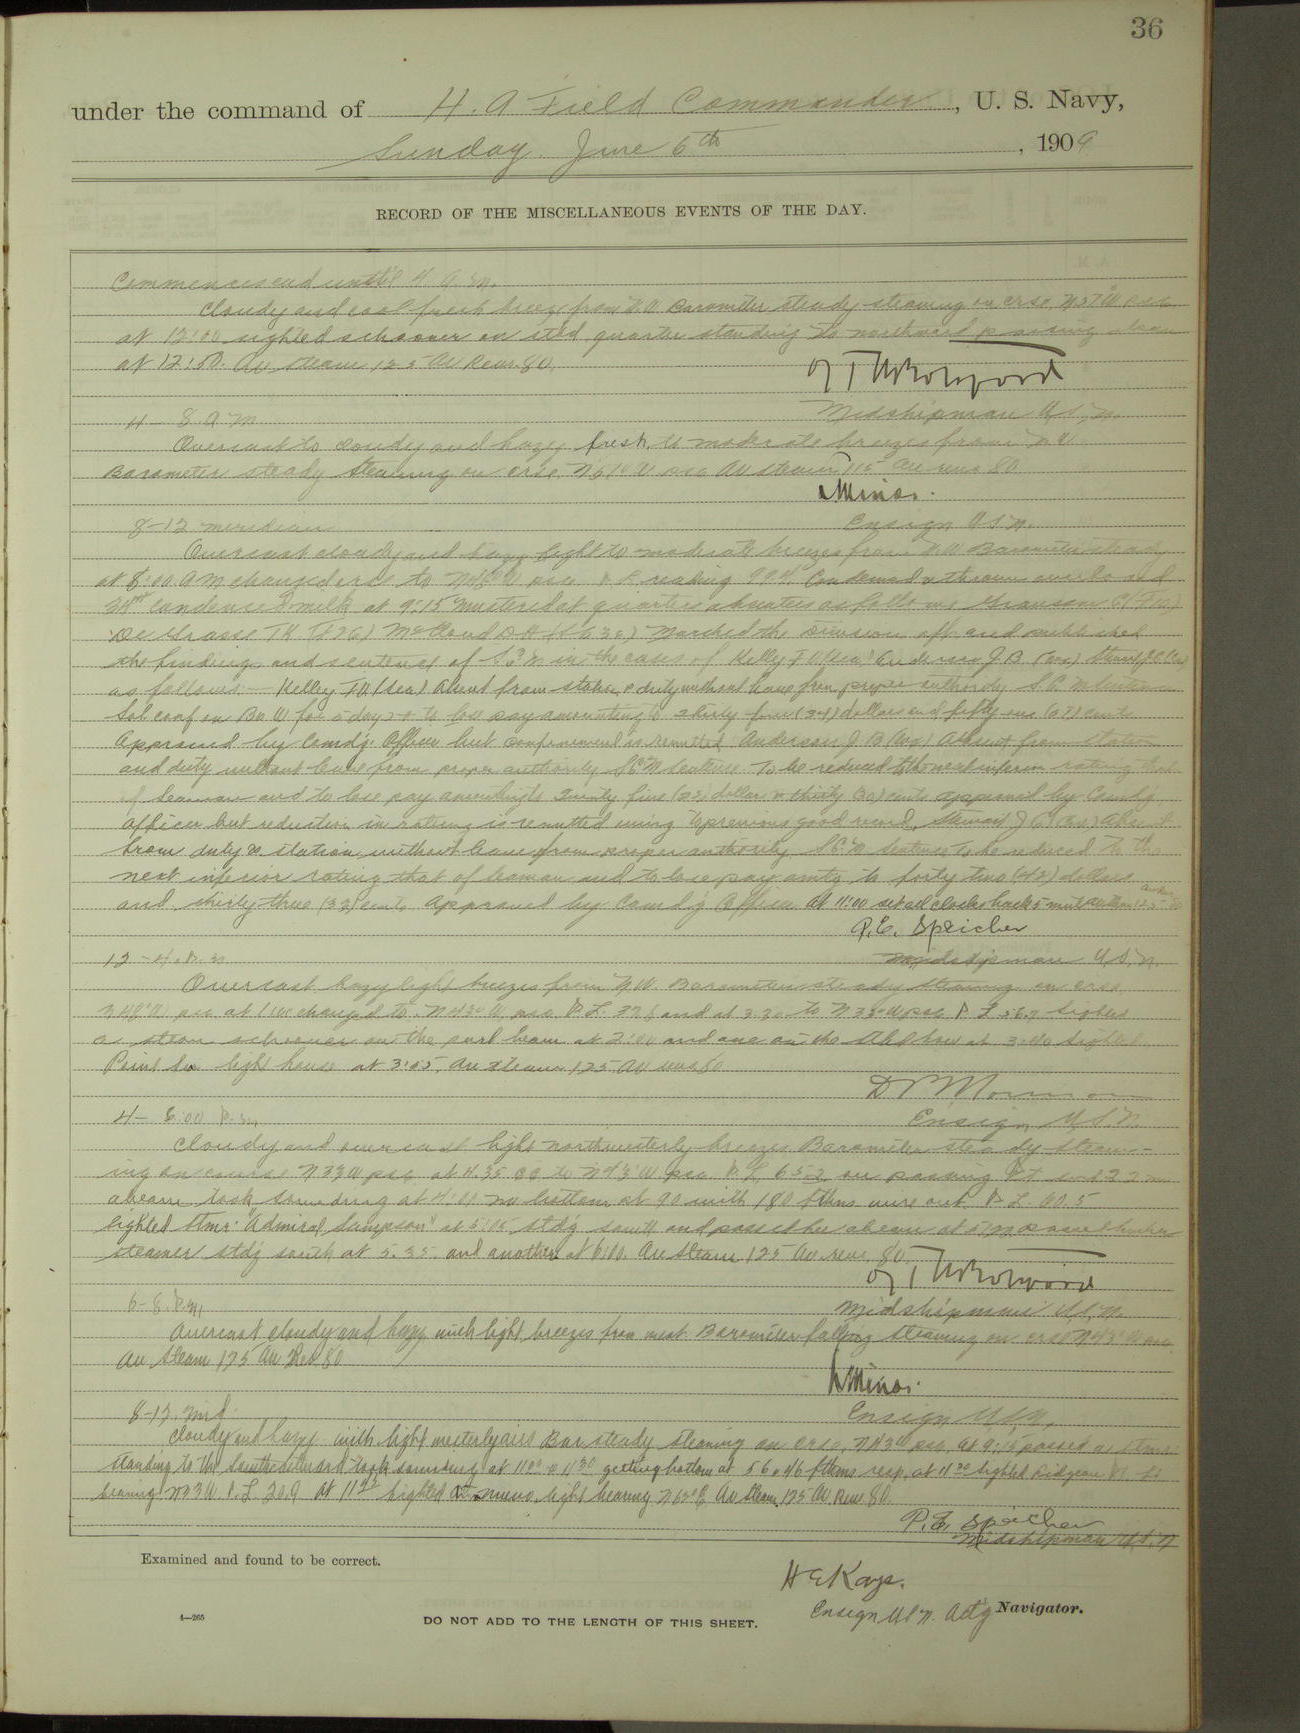 36
under the command of H. A Field Commander, U. S. Navy,
Sunday June 6th, 1909
RECORD OF THE MISCELLANEOUS EVENTS OF THE DAY.
Commences and until 4 a.m.
Cloudy and cool fresh breeze from N.W. Barometer steady steaming on crse.
at 12:00 sighted schooner on stbd quarter standing to northward passing abeam
at 12:50. Av steam 125 Av Revs. 80.
Midshipman U.S.N.
4 - 8 a m
Overcast to cloudy and hazy fresh to moderate breezes from N W
Barometer steady steaming on crse N 61° W psc Av steam 115 Av revs 80
Minor.
8-12 meridian
Ensign U.S.N.
Overcast cloudy and hazy light to moderate breezes from N.W Barometer steady
at 8:00 A M changed crse to psc P. L. reading 99.4. Condemned & threw overbd
condensed milk at 9:15 Mustered at quarters absentees as follows
De Grasse Marched the Division aft and published
the findings and sentences of in the cases of Kelly Anderson J. B
as follows:- Kelley (Sea) Absent from station & duty without leave from proper authority S.C.M. Sentence
Sol conf on B. & W for 5 days & to lose pay amounting to thirty four (34) dollars and fifty cents
Approved by Comdg. Officer but confinement is remitted Anderson J. B (Cox) Absent from station
and duty without leave from proper authority S.C.M Sentence To be reduced to the next inferior rating that
of Seaman and to lose pay amounting to twenty five (25) dollars & thirty (30) cents approved by Comdg
officer but reduction in rating is remitted owing to previous good record. Stewart J C (Cox) Absent
from duty & station without leave from proper authority S.C.M Sentence to be reduced to the
next inferior rating that of Seaman and to lose pay amtg to forty two (42) dollars
and thirty three (33) cents approved by Comd'g Officer. At 11:00 set all clocks back 5 mins
P. E. Speicher
12 - 4. P. m
Midshipman U.S.N.
Overcast hazy light breezes from N.W. Barometer steady steaming on crse
psc at changed to N 43° W psc P. L. 37.6 and at 3:30 to N 33° W psc P. L. 56.7 Sighted
a steam schooner on the port beam at 2:00 and one on the stbd bow at 3:40 sighted
Point Sur light house at 3:05. Av steam 125 Av revs 80
Ensign U.S.N.
4- 6:00 P.m
Cloudy and overcast light northwesterly breezes Barometer steady steam-
ing on course N 33 W psc at 4.35 CC to N 43° W psc P. L. 65.2 on passing Pt Sur
abeam took sounding at no bottom at 90 with 180 fthms wire out P. L. 60.5
Sighted Stmr. "Admiral Sampson" at 5:05 stdg south and passed her abeam at
steamer stdg south at 5.35. and another at 6:00. Av Steam 125 Av revs. 80
Midshipman U.S.N.
6-8. P.M.
Overcast cloudy and hazy with light breezes from west. Barometer falling steaming on crse N 43° W psc.
Av Steam 125 Av Rev 80
Minor.
8-12. mid.
Ensign U.S.N.
Cloudy and hazy with light westerly airs Bar steady steaming on crse, N 43° W psc. at passed a stmr
standing to the Southward took sounding at 11:00 & 11:30 getting bottom at 56 & 46 fthms resp. at sighted Pidgeon Pt. Lt
bearing P. L. 20.9 At sighted light bearing Av Steam. 125 Av. Rev 80.
P. E. Speicher
Midshipman U.S.N
Examined and found to be correct.
H E Kays.
Ensign U.S.N. Actg Navigator.
4—265
DO NOT ADD TO THE LENGTH OF THIS SHEET.